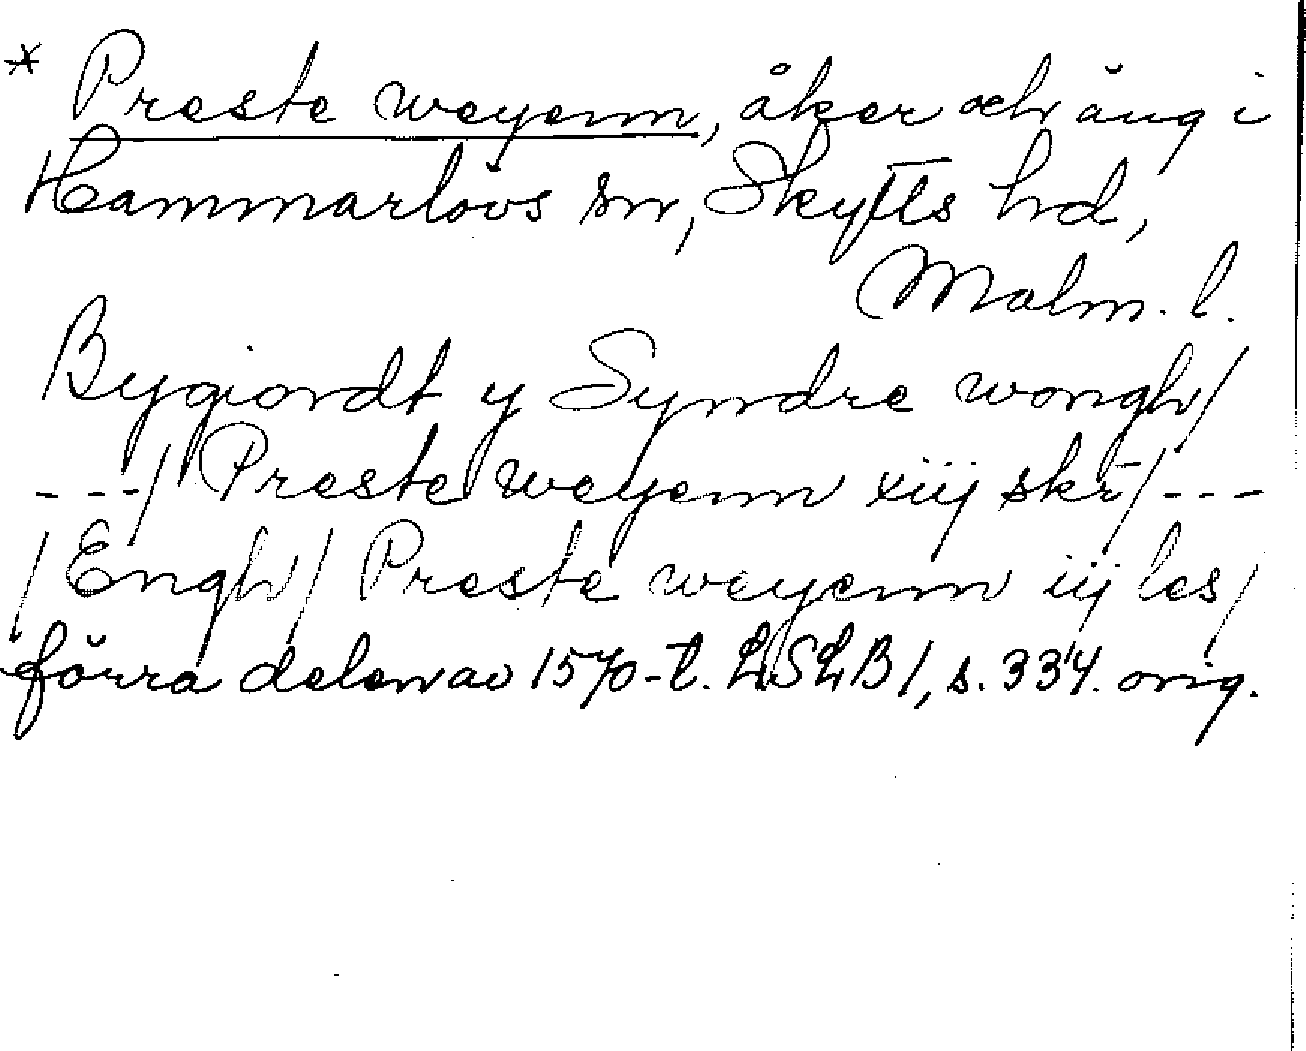 * Preste weyenn, åker och äng i
Hammarlövs sn, Skytts hd,
Malm. l.
Bygiordt y Syndre wongh/
---/ Preste weyenn xiij skr̄/---
/Engh/ Preste weyenn iij les/
förra delen av 1570-t. LSLB 1, s. 334. orig.